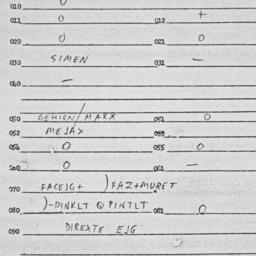 010 0
011 0 012 +
020 0 021 0
030 SIMEN 031 —
060 —
050 GEHIRN/MARX 051 0
052 MEJAX
054 0 055 0
060 0 061 —
070 FACEJG+ )FAZ+MURET
080 )-DINKLT Q PINTLT 081 0
090 DIREXTE EJG